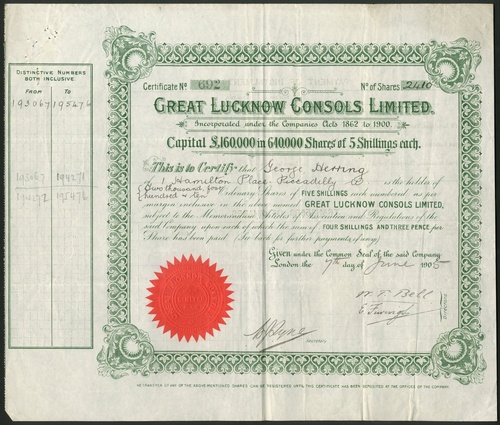 DISTINCTIVE NUMBERS
BOTH INCLUSIVE
FROM TO
193067 195476
Certificate No 692
No of Shares 2410
GREAT LUCKNOW CONSOLS LIMITED.
Incorporated under the Companies Acts 1862 to 1900.
Capital £160,000 in 640,000 Shares of 5 Shillings each.
This is to Certify that George Herring
of 1 Hamilton Place Piccadilly is the holder of
Two thousand four hundred & ten Ordinary Shares of FIVE SHILLINGS each numbered as per
margin inclusive in the above named GREAT LUCKNOW CONSOLS LIMITED,
subject to the Memorandum Articles of Association and Regulations of the
said Company upon each of which the sum of FOUR SHILLINGS AND THREE PENCE per
Share has been paid. See back for further payments (if any)
Given under the Common Seal of the said Company
London the 7th day of June 1905
W. T. Bell
Directors
NO TRANSFER OF ANY OF THE ABOVE-MENTIONED SHARES CAN BE REGISTERED UNTIL THIS CERTIFICATE HAS BEEN DEPOSITED AT THE OFFICES OF THE COMPANY.